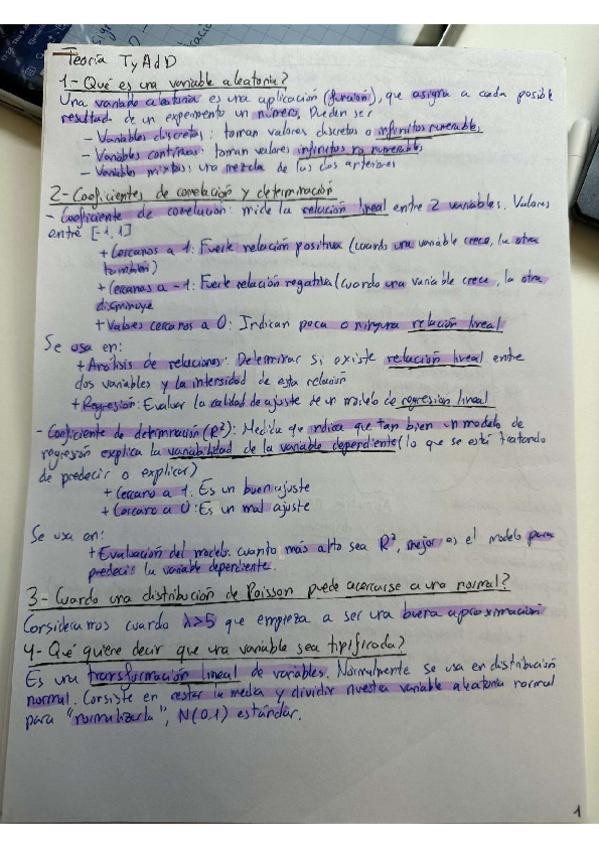 Teoría TyAdD
1- Qué es una variable aleatoria?
Una variable aleatoria es una aplicación (función), que asigna a cada posible
resultado de un experimento un número. Pueden ser
- Variables discretas: toman valores discretos o infinitos numerables
- Variables continuas: toman valores infinitos no numerables
- Variables mixtas: una mezcla de las dos anteriores
2- Coeficientes de correlación y determinación
- Coeficiente de correlación: mide la relación lineal entre 2 variables. Valores
entre [-1,1]
+ Cercanos a 1: Fuerte relación positiva (cuando una variable crece, la otra
también)
+ Cercanos a -1: Fuerte relación negativa (cuando una variable crece, la otra
disminuye
+ Valores cercanos a 0: Indican poca o ninguna relación lineal
Se usa en:
+ Análisis de relaciones: Determinar si existe relación lineal entre
dos variables y la intensidad de esta relación
+ Regresión: Evaluar la calidad de ajuste de un modelo de regresión lineal
- Coeficiente de determinación (R²): Medida que indica que tan bien un modelo de
regresión explica la variabilidad de la variable dependiente (lo que se está tratando
de predecir o explicar)
+ Cercano a 1: Es un buen ajuste
+ Cercano a 0: Es un mal ajuste
Se usa en:
+ Evaluación del modelo: cuanto más alto sea R², mejor es el modelo para
predecir la variable dependiente.
3- Cuando una distribución de Poisson puede acercarse a una normal?
Consideramos cuando λ>5 que empieza a ser una buena aproximación
4- Qué quiere decir que una variable sea tipificada?
Es una transformación lineal de variables. Normalmente se usa en distribución
normal. Consiste en restar la media y dividir nuestra variable aleatoria normal
para "normalizarla", N(0,1) estándar.
1